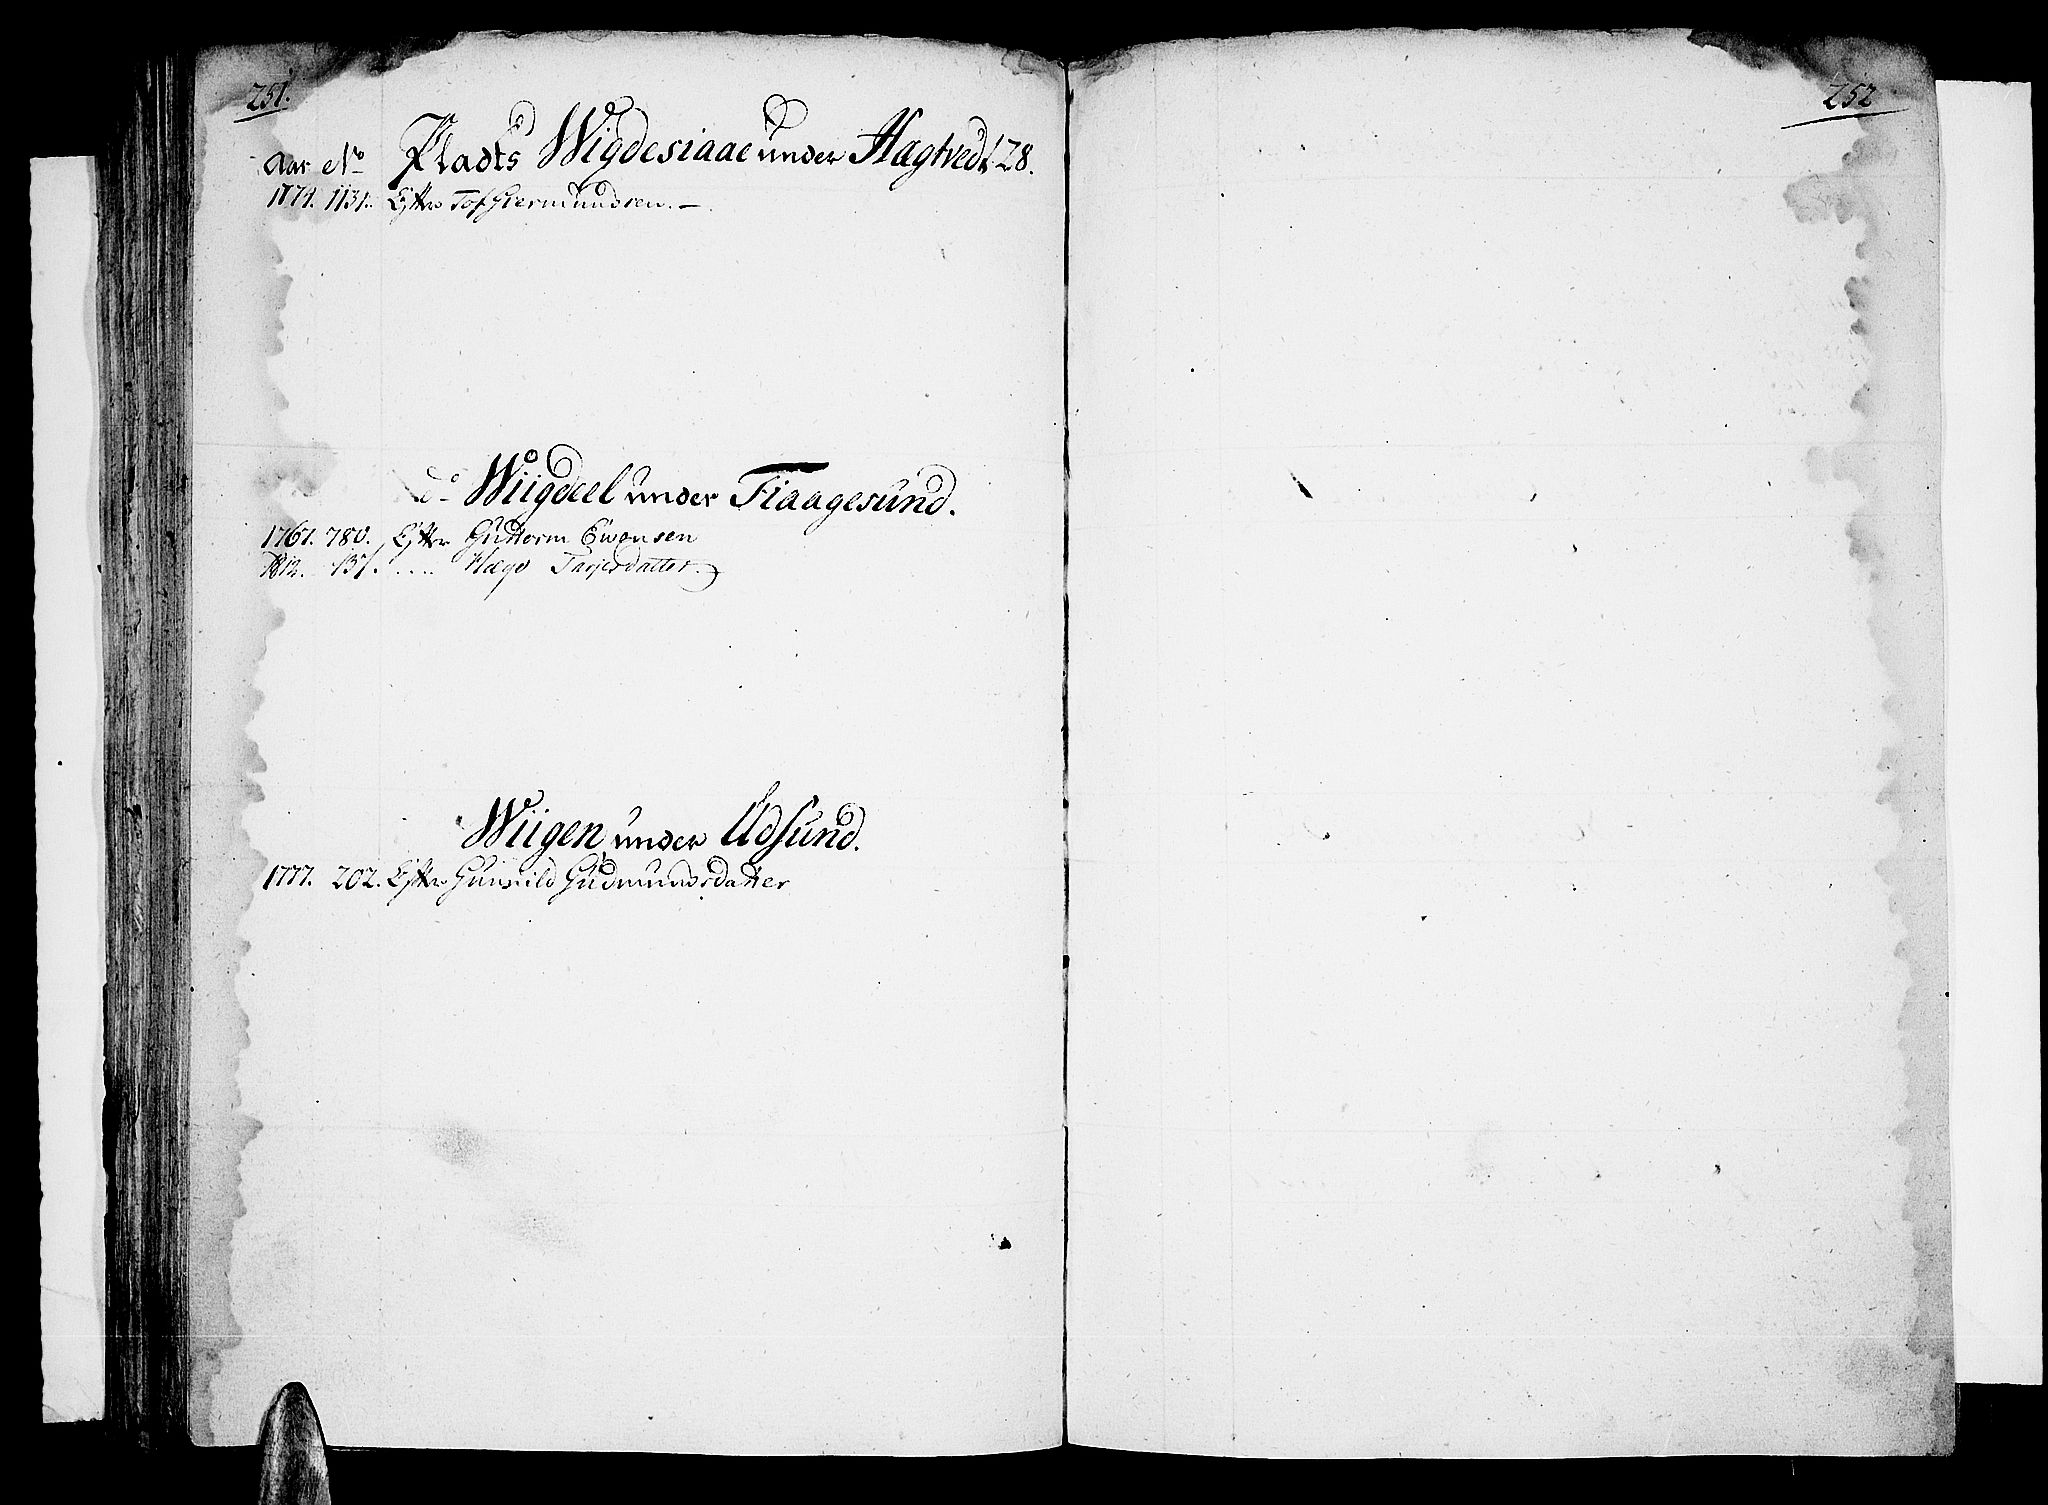 251.
Aar No Pladts Wigdesiaae under Hagtvedt 28.
1774. 1131. Efter Tof Giermundsen. —
do Wiigdeel under Fiaagesund.
1767. 780. Efter Guttorm Ewensen
1812. 137. .... Hæge Tarjesdatter.
Wiigen under Udsund.
1777. 202. Efter Gunnild Gudmundsdatter
252